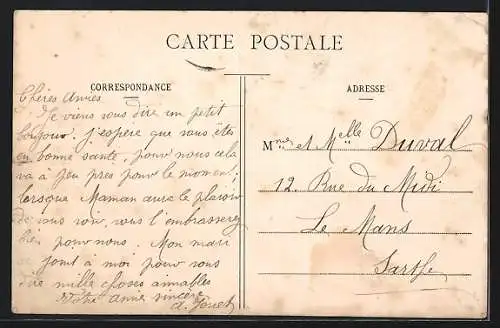 CARTE POSTALE
CORRESPONDANCE
Chères Amies
Je viens vous dire un petit
bonjour. j'espère que vous êtes
en bonne santé, pour nous cela
va à peu près pour le moment;
lorsque Maman aura le plaisir
de vous voir, vous l'embrasserez
bien pour nous. Mon mari
se joint à moi pour vous
dire mille choses aimables
Votre amie sincère
ADRESSE
Mme et Melle Duval
12. Rue du Midi
Le Mans
Sarthe